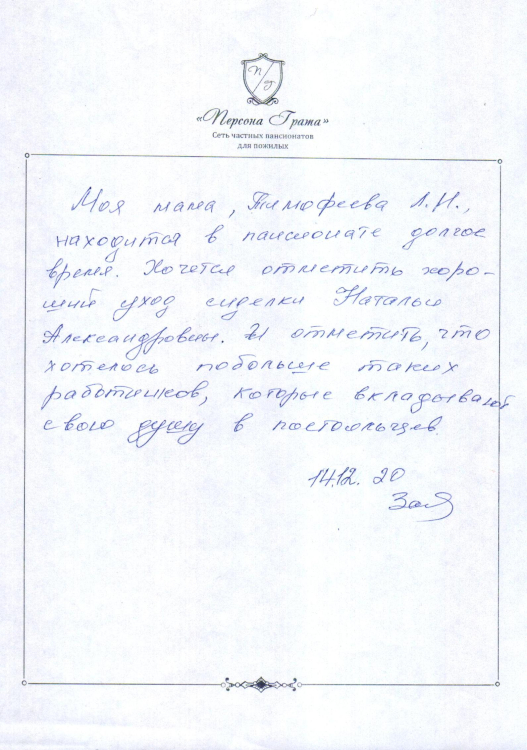 П Г
«Персона Грата»
Сеть частных пансионатов
для пожилых
Моя мама, Тимофеева Л.Н.,
находится в пансионате долгое
время. Хочется отметить хоро-
ший уход сиделки Натальи
Александровны. И отметить, что
хотелось побольше таких
работников, которые вкладывают
свою душу в постояльцев.
14.12. 20